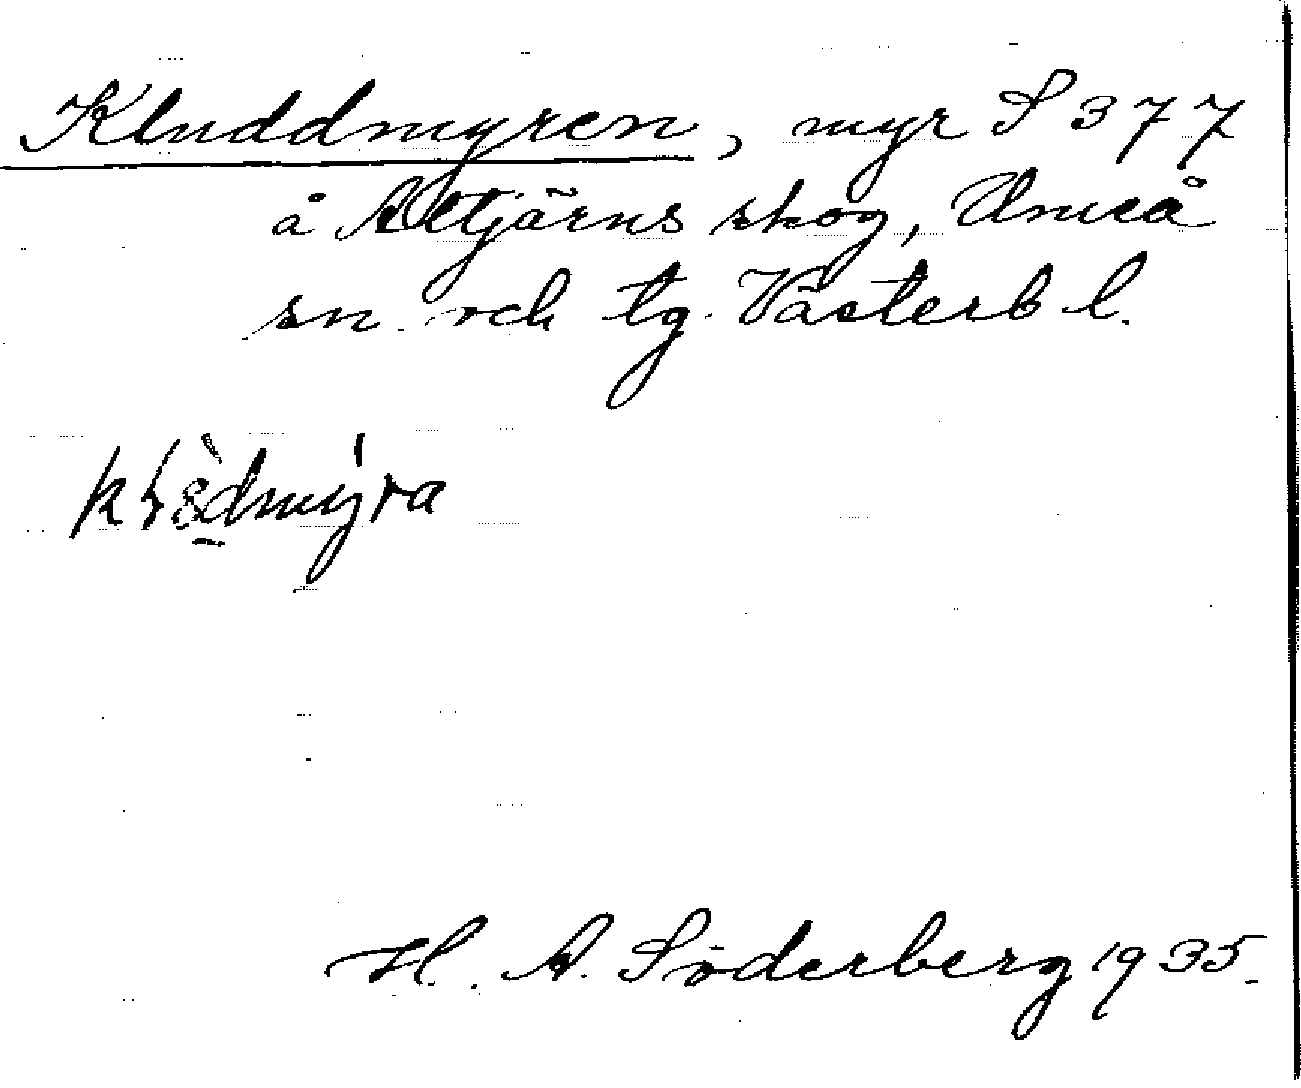 Kluddmyren, myr S 377
å Altjärns skog, Umeå
sn. och tg. Västerb l.
H. A. Söderberg 1935.